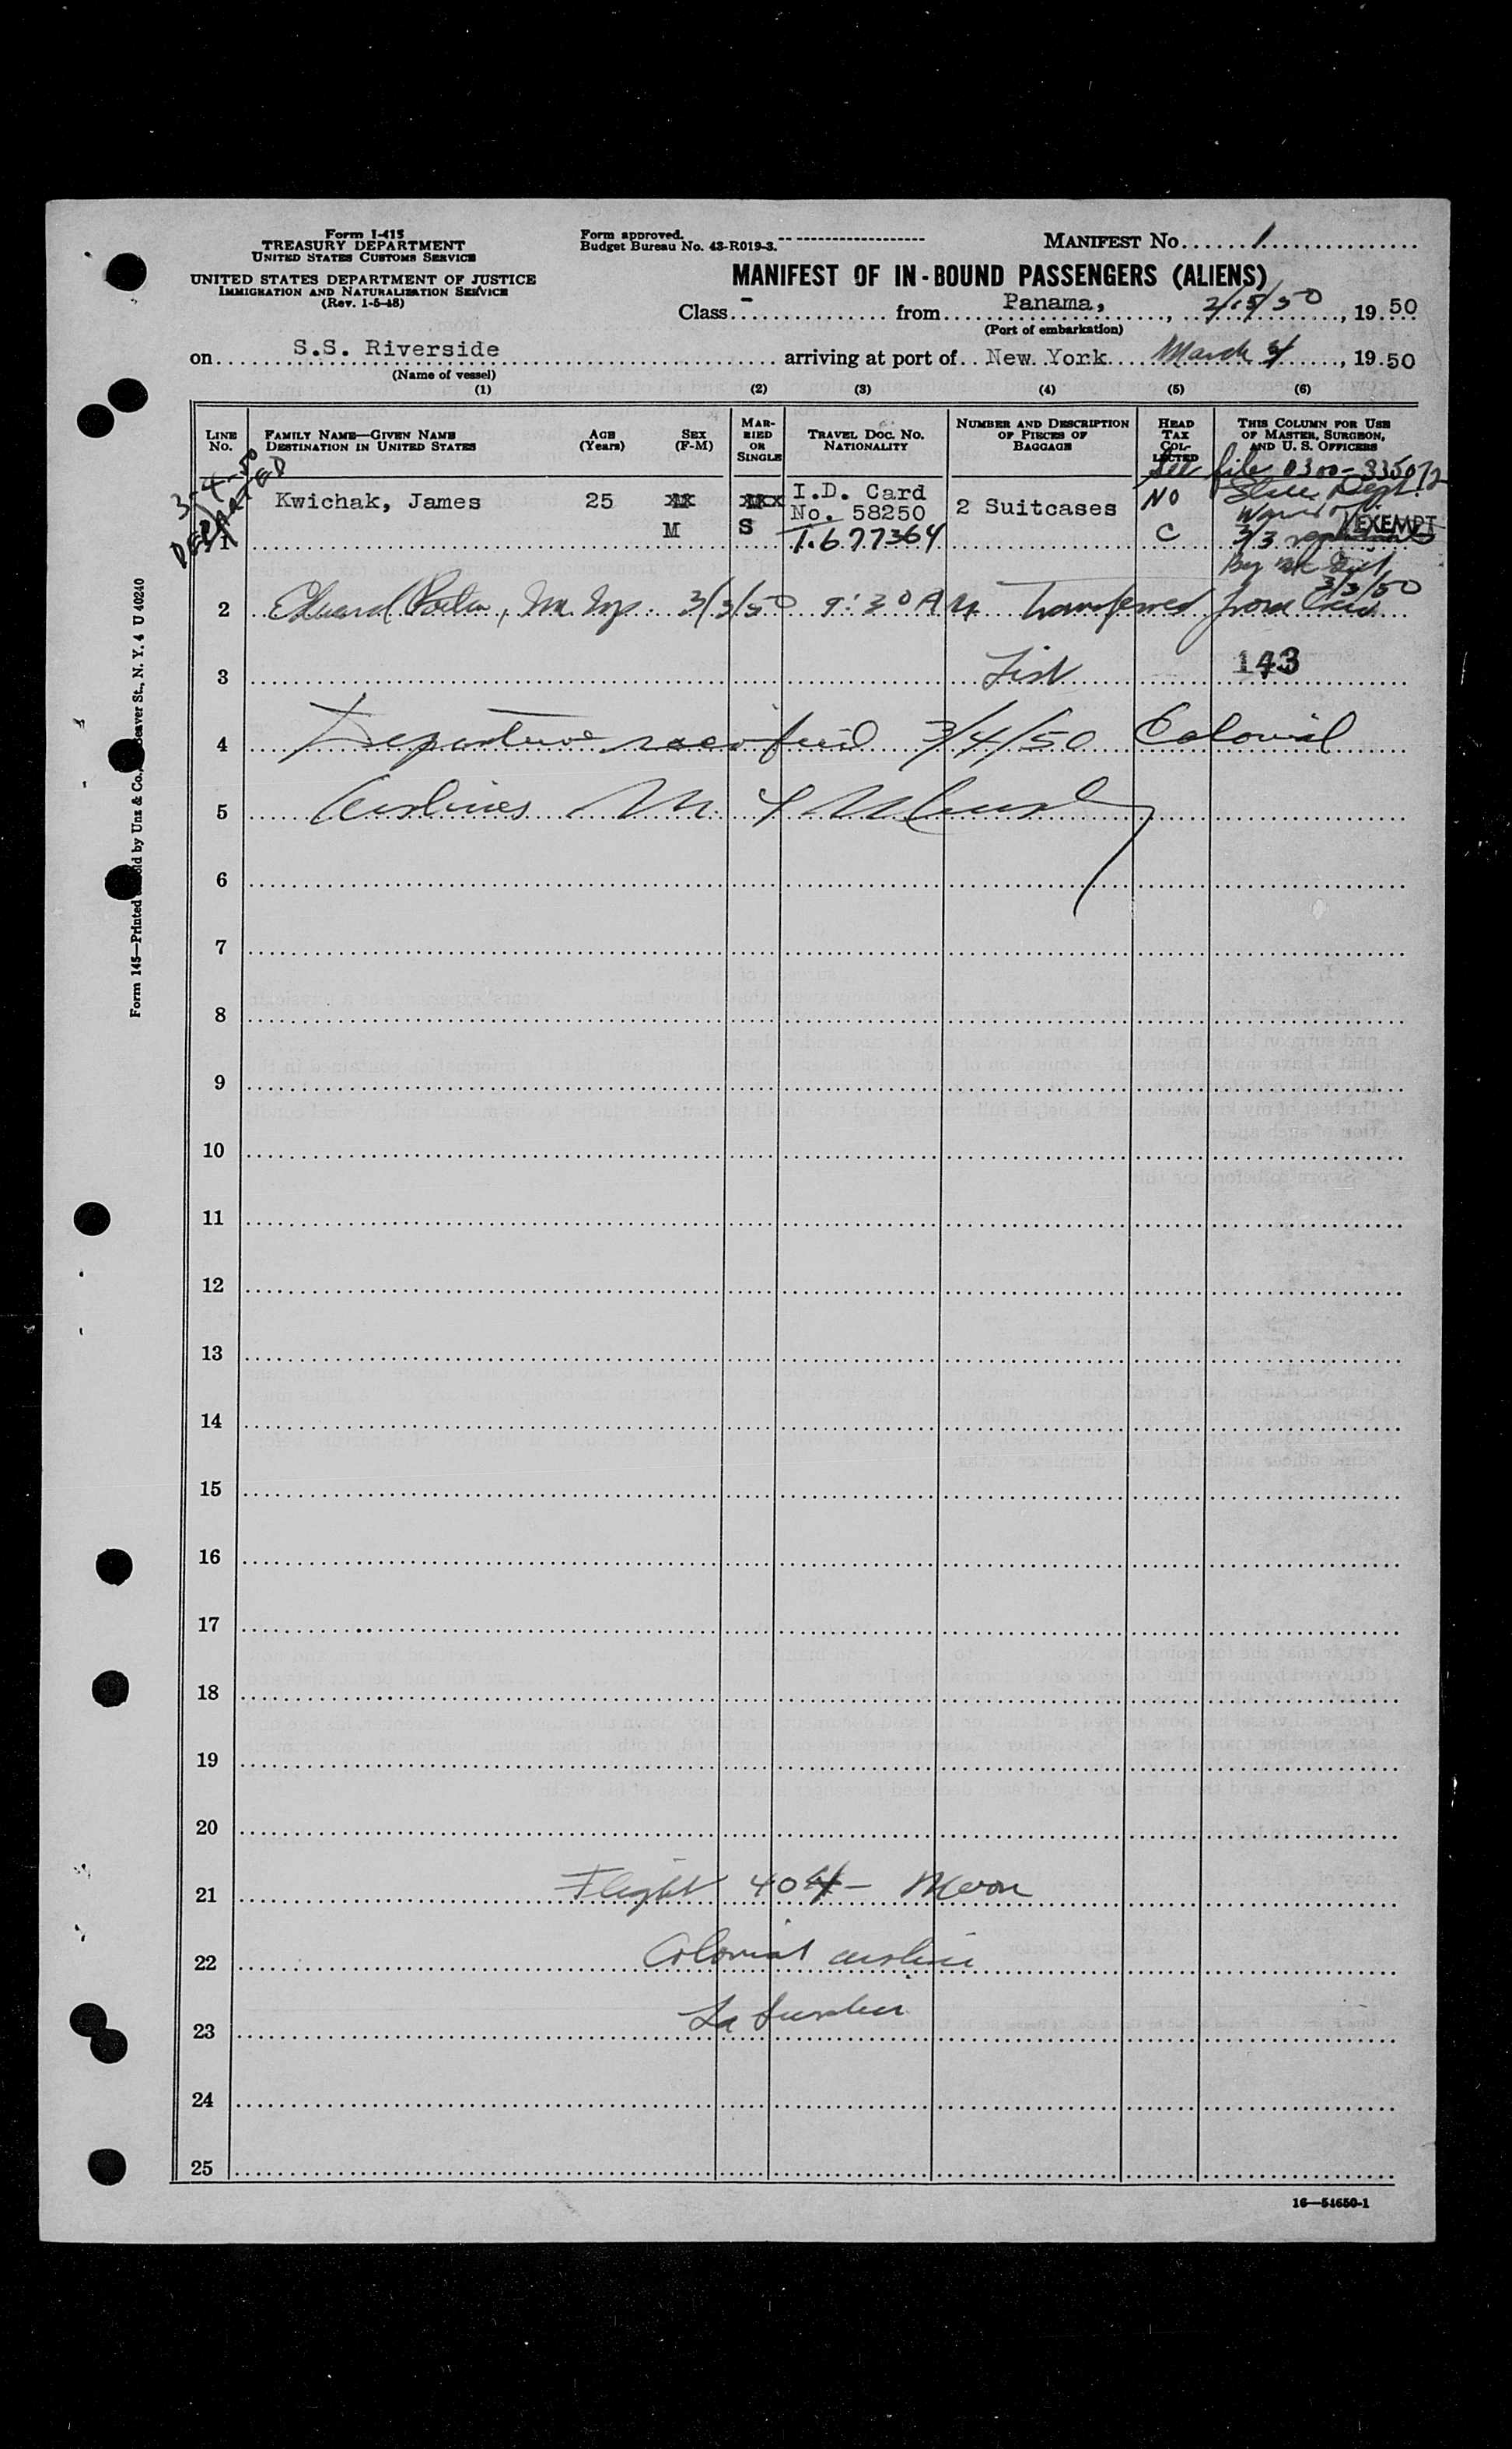 Form I-415
TREASURY DEPARTMENT
UNITED STATES CUSTOMS SERVICE
UNITED STATES DEPARTMENT OF JUSTICE
IMMIGRATION AND NATURALIZATION SERVICE
(Rev. 1-5-48)
Form approved.
Budget Bureau No. 43-R019-3.
MANIFEST NO. 1
MANIFEST OF IN-BOUND PASSENGERS (ALIENS)
Class - from Panama, 2/15/50, 19 50
(Port of embarkation)
on S.S. Riverside arriving at port of New York March 4, 19 50
(Name of vessel)
(1) (2) (3) (4) (5) (6)
LINE NO.
FAMILY NAME—GIVEN NAME
DESTINATION IN UNITED STATES
AGE (Years)
SEX (F-M)
MARRIED OR SINGLE
TRAVEL DOC. NO. NATIONALITY
NUMBER AND DESCRIPTION OF PIECES OF BAGGAGE
HEAD TAX COLLECTED
THIS COLUMN FOR USE OF MASTER, SURGEON, AND U. S. OFFICERS
See file 0300-335072
3-4-50
DEPARTED
1 Kwichak, James 25 M S I.D. Card No. 58250 2 Suitcases NO
T.677364 C 3/3
State Dept.
EXEMPT
3/3/50
2 Edward 3/3/50 9:30 AM Transferred from Crew
3 List 143
4 Departure 3/4/50 Colonial
5 Airlines
6
7
8
9
10
11
12
13
14
15
16
17
18
19
20
21 Flight 404 -
22 Colonial airline
23
24
25
16—54650-1
Form 145—Printed by Unz & Co., Beaver St., N. Y. 4 U 40240